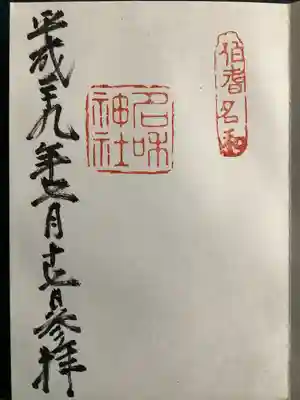 伯耆名和
名和
神社
平成二九年七月十七日参拝